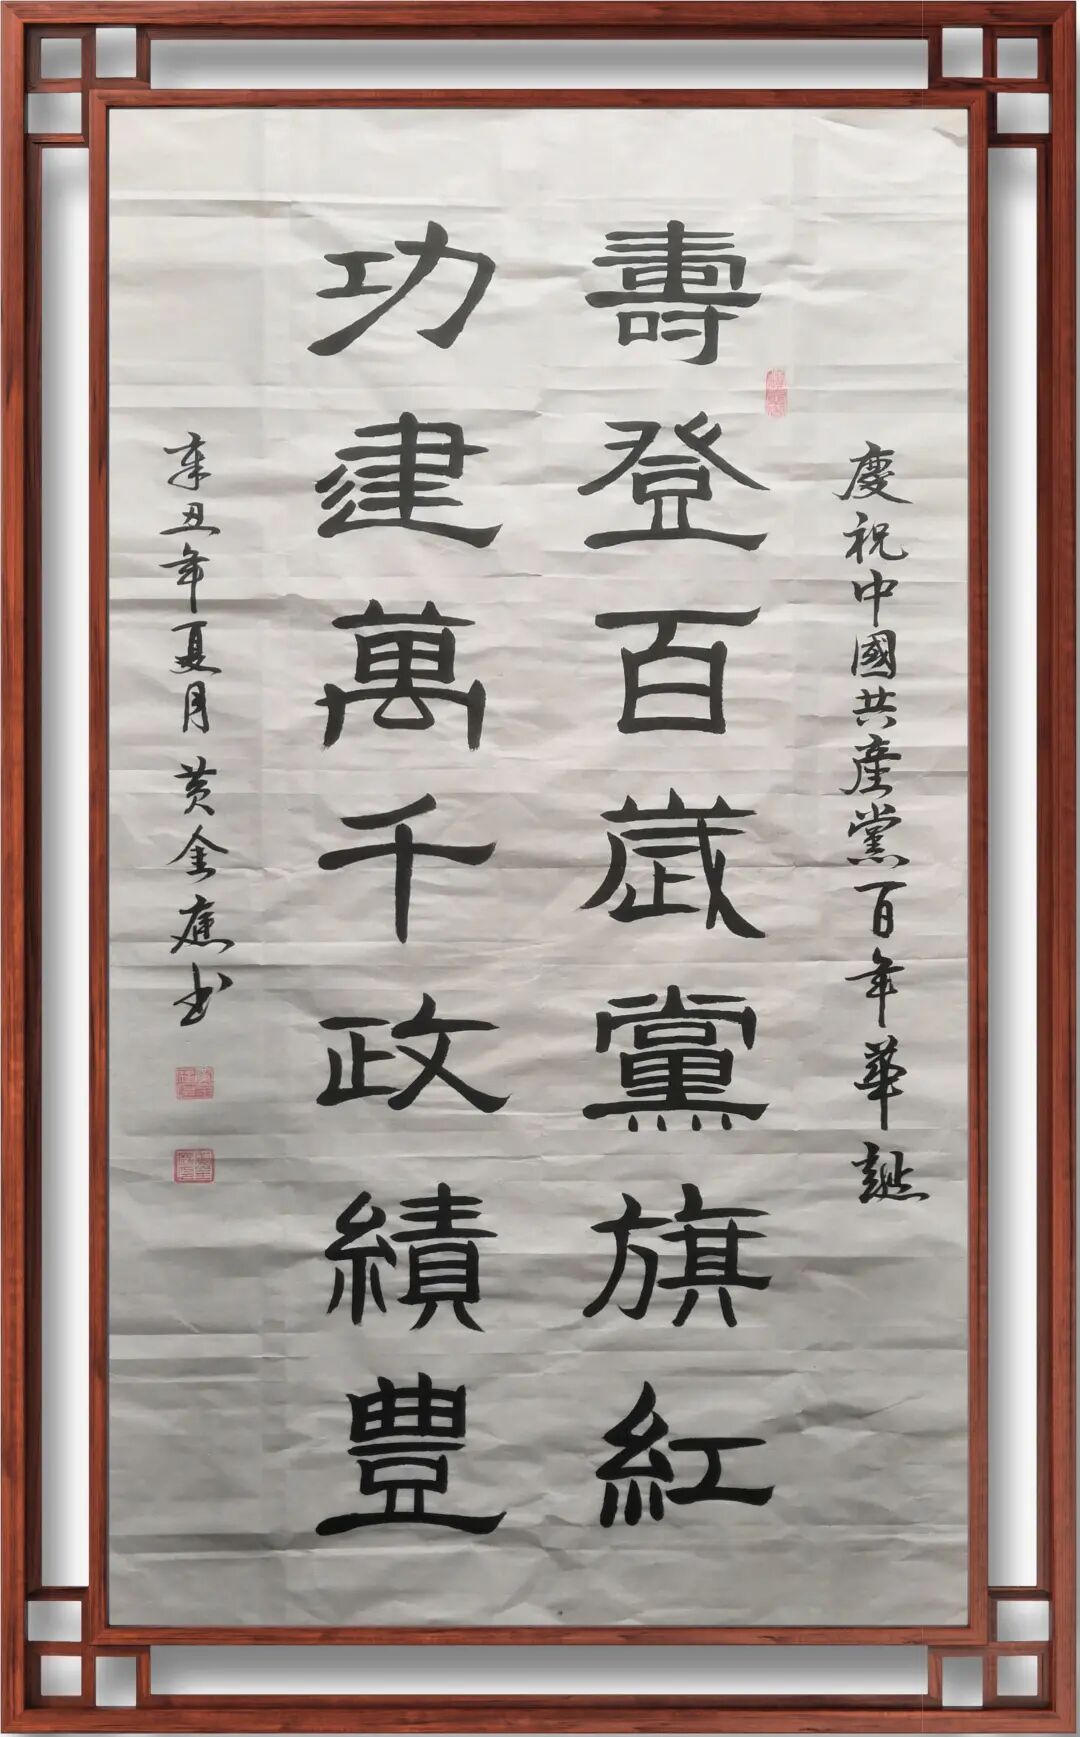 慶祝中國共產黨百年華誕
壽登百歲黨旗紅
功建萬千政績豐
辛丑年夏月黄金應书